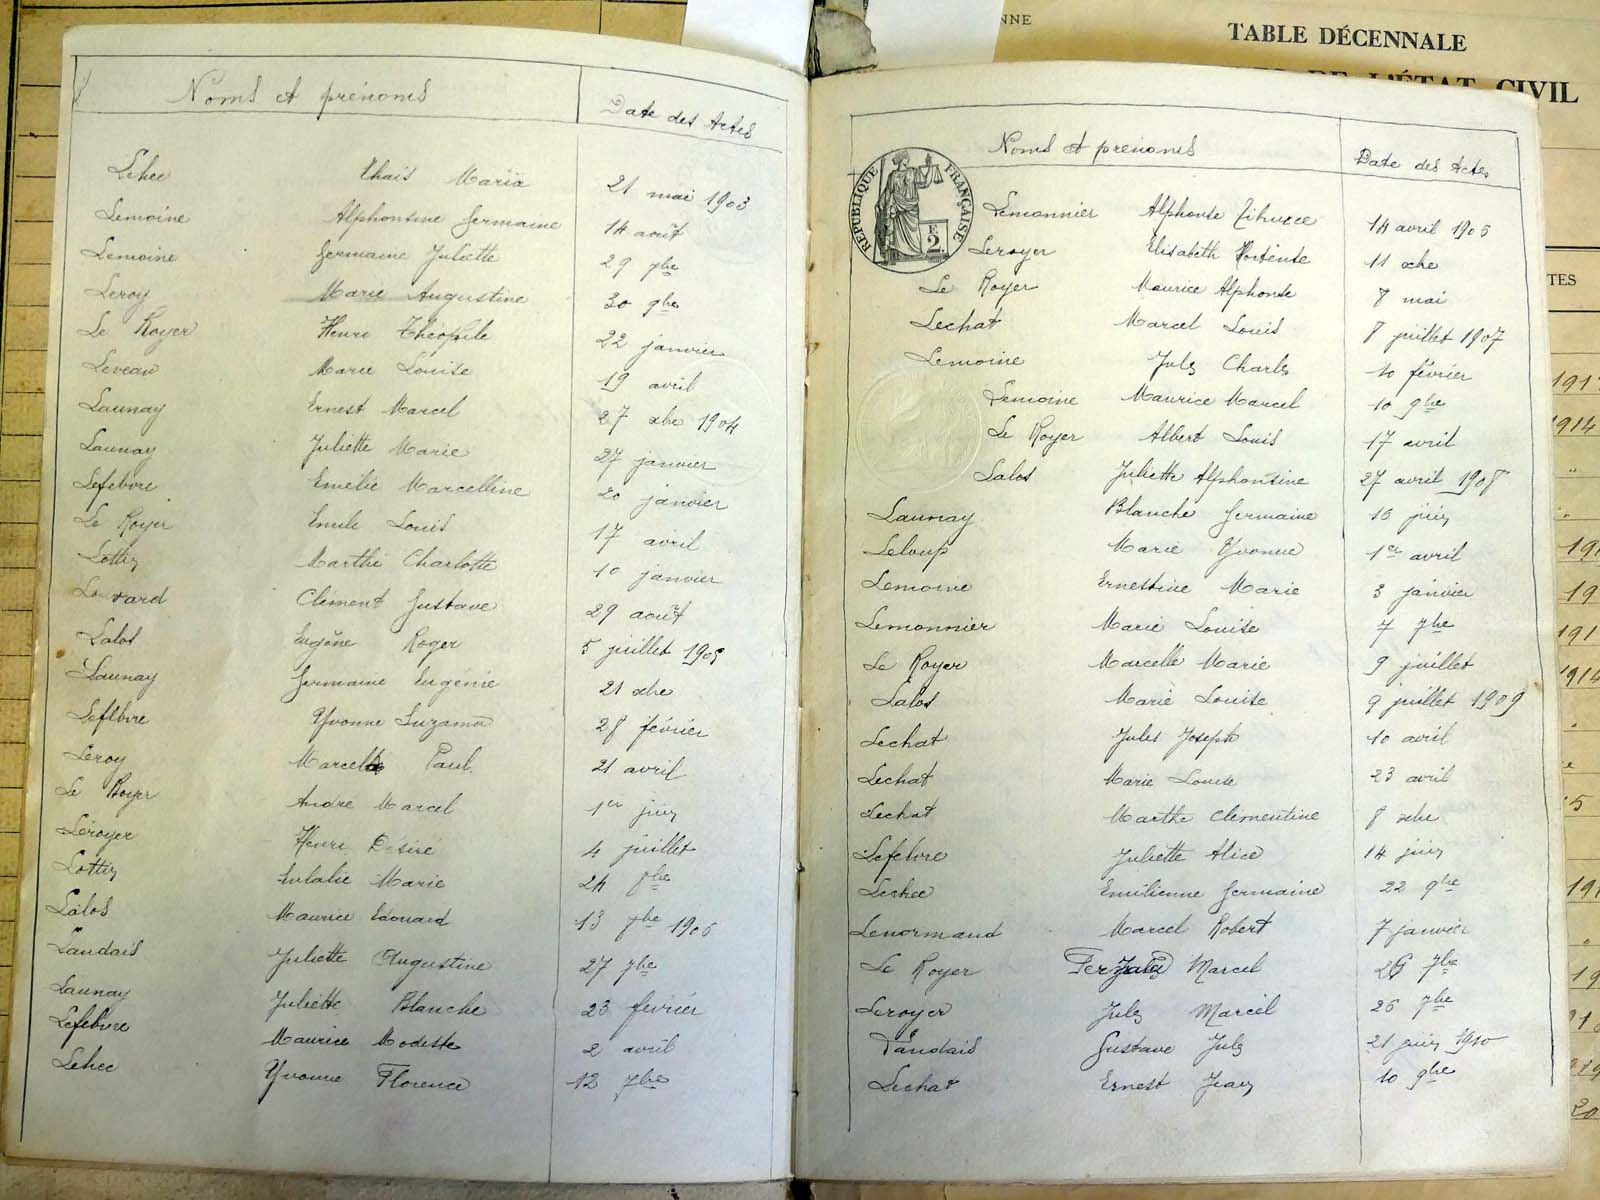 Noms et prénoms Date des Actes
Lehec Thaïs Maria 21 mai 1903
Lemoine Alphonsine Germaine 14 août
Lemoine Germaine Juliette 29 7bre
Leroy Marie Augustine 30 9bre
Le Royer Henri Théophile 22 janvier
Leveau Marie Louise 19 avril
Launay Ernest Marcel 27 xbre 1904
Launay Juliette Marie 27 janvier
Lefebvre Emélie Marcelline 20 janvier
Le Royer Emile Louis 17 avril
Lottin Marthe Charlotte 10 janvier
Clément Gustave 29 août
Lalos Eugène Roger 5 juillet 1905
Launay Germaine Eugénie 21 xbre
Lefebvre Yvonne Suzanne 28 février
Leroy Marcel Paul 21 avril
Le Royer André Marcel 1er juin
Leroyer Henri Désiré 4 juillet
Lottin Eulalie Marie 24
Lalos Maurice Edouard 13 7bre 1906
Landais Juliette Augustine 27 7bre
Launay Juliette Blanche 23 février
Lefebvre Maurice Modeste 2 avril
Lehec Yvonne Florence 12 7bre
NNE
TABLE DÉCENNALE
L'ÉTAT CIVIL
Noms et prénoms Date des Actes
RÉPUBLIQUE FRANÇAISE
E
2
Lemonnier Alphonse 14 avril 1906
Leroyer Elisabeth Hortense 11 xbre
Le Royer Maurice Alphonse 7 mai
Lechat Marcel Louis 8 juillet 1907
Lemoine Jules Charles 10 février
Lemoine Maurice Marcel 10 9bre
Le Royer Albert Louis 17 avril
Lalos Juliette Alphonsine 27 avril 1908
Launay Blanche Germaine 16 juin
Leloup Marie Yvonne 1er avril
Lemoine Ernestine Marie 3 janvier
Lemonnier Marie Louise 7 7bre
Le Royer Marcelle Marie 9 juillet
Lalos Marie Louise 9 juillet 1909
Lechat Jules Joseph 10 avril
Lechat Marie Louise 23 avril
Lechat Marthe Clémentine 8 xbre
Lefebvre Juliette Alice 14 juin
Lechec Emilienne Germaine 22 9bre
Lenormand Marcel Robert 7 janvier
Le Royer Marcel 7bre
Leroyer Jules Marcel 26 7bre
Landais Gustave Jules 21 juin 1910
Lechat Ernest Jean 10 9bre
TES
1914
1914